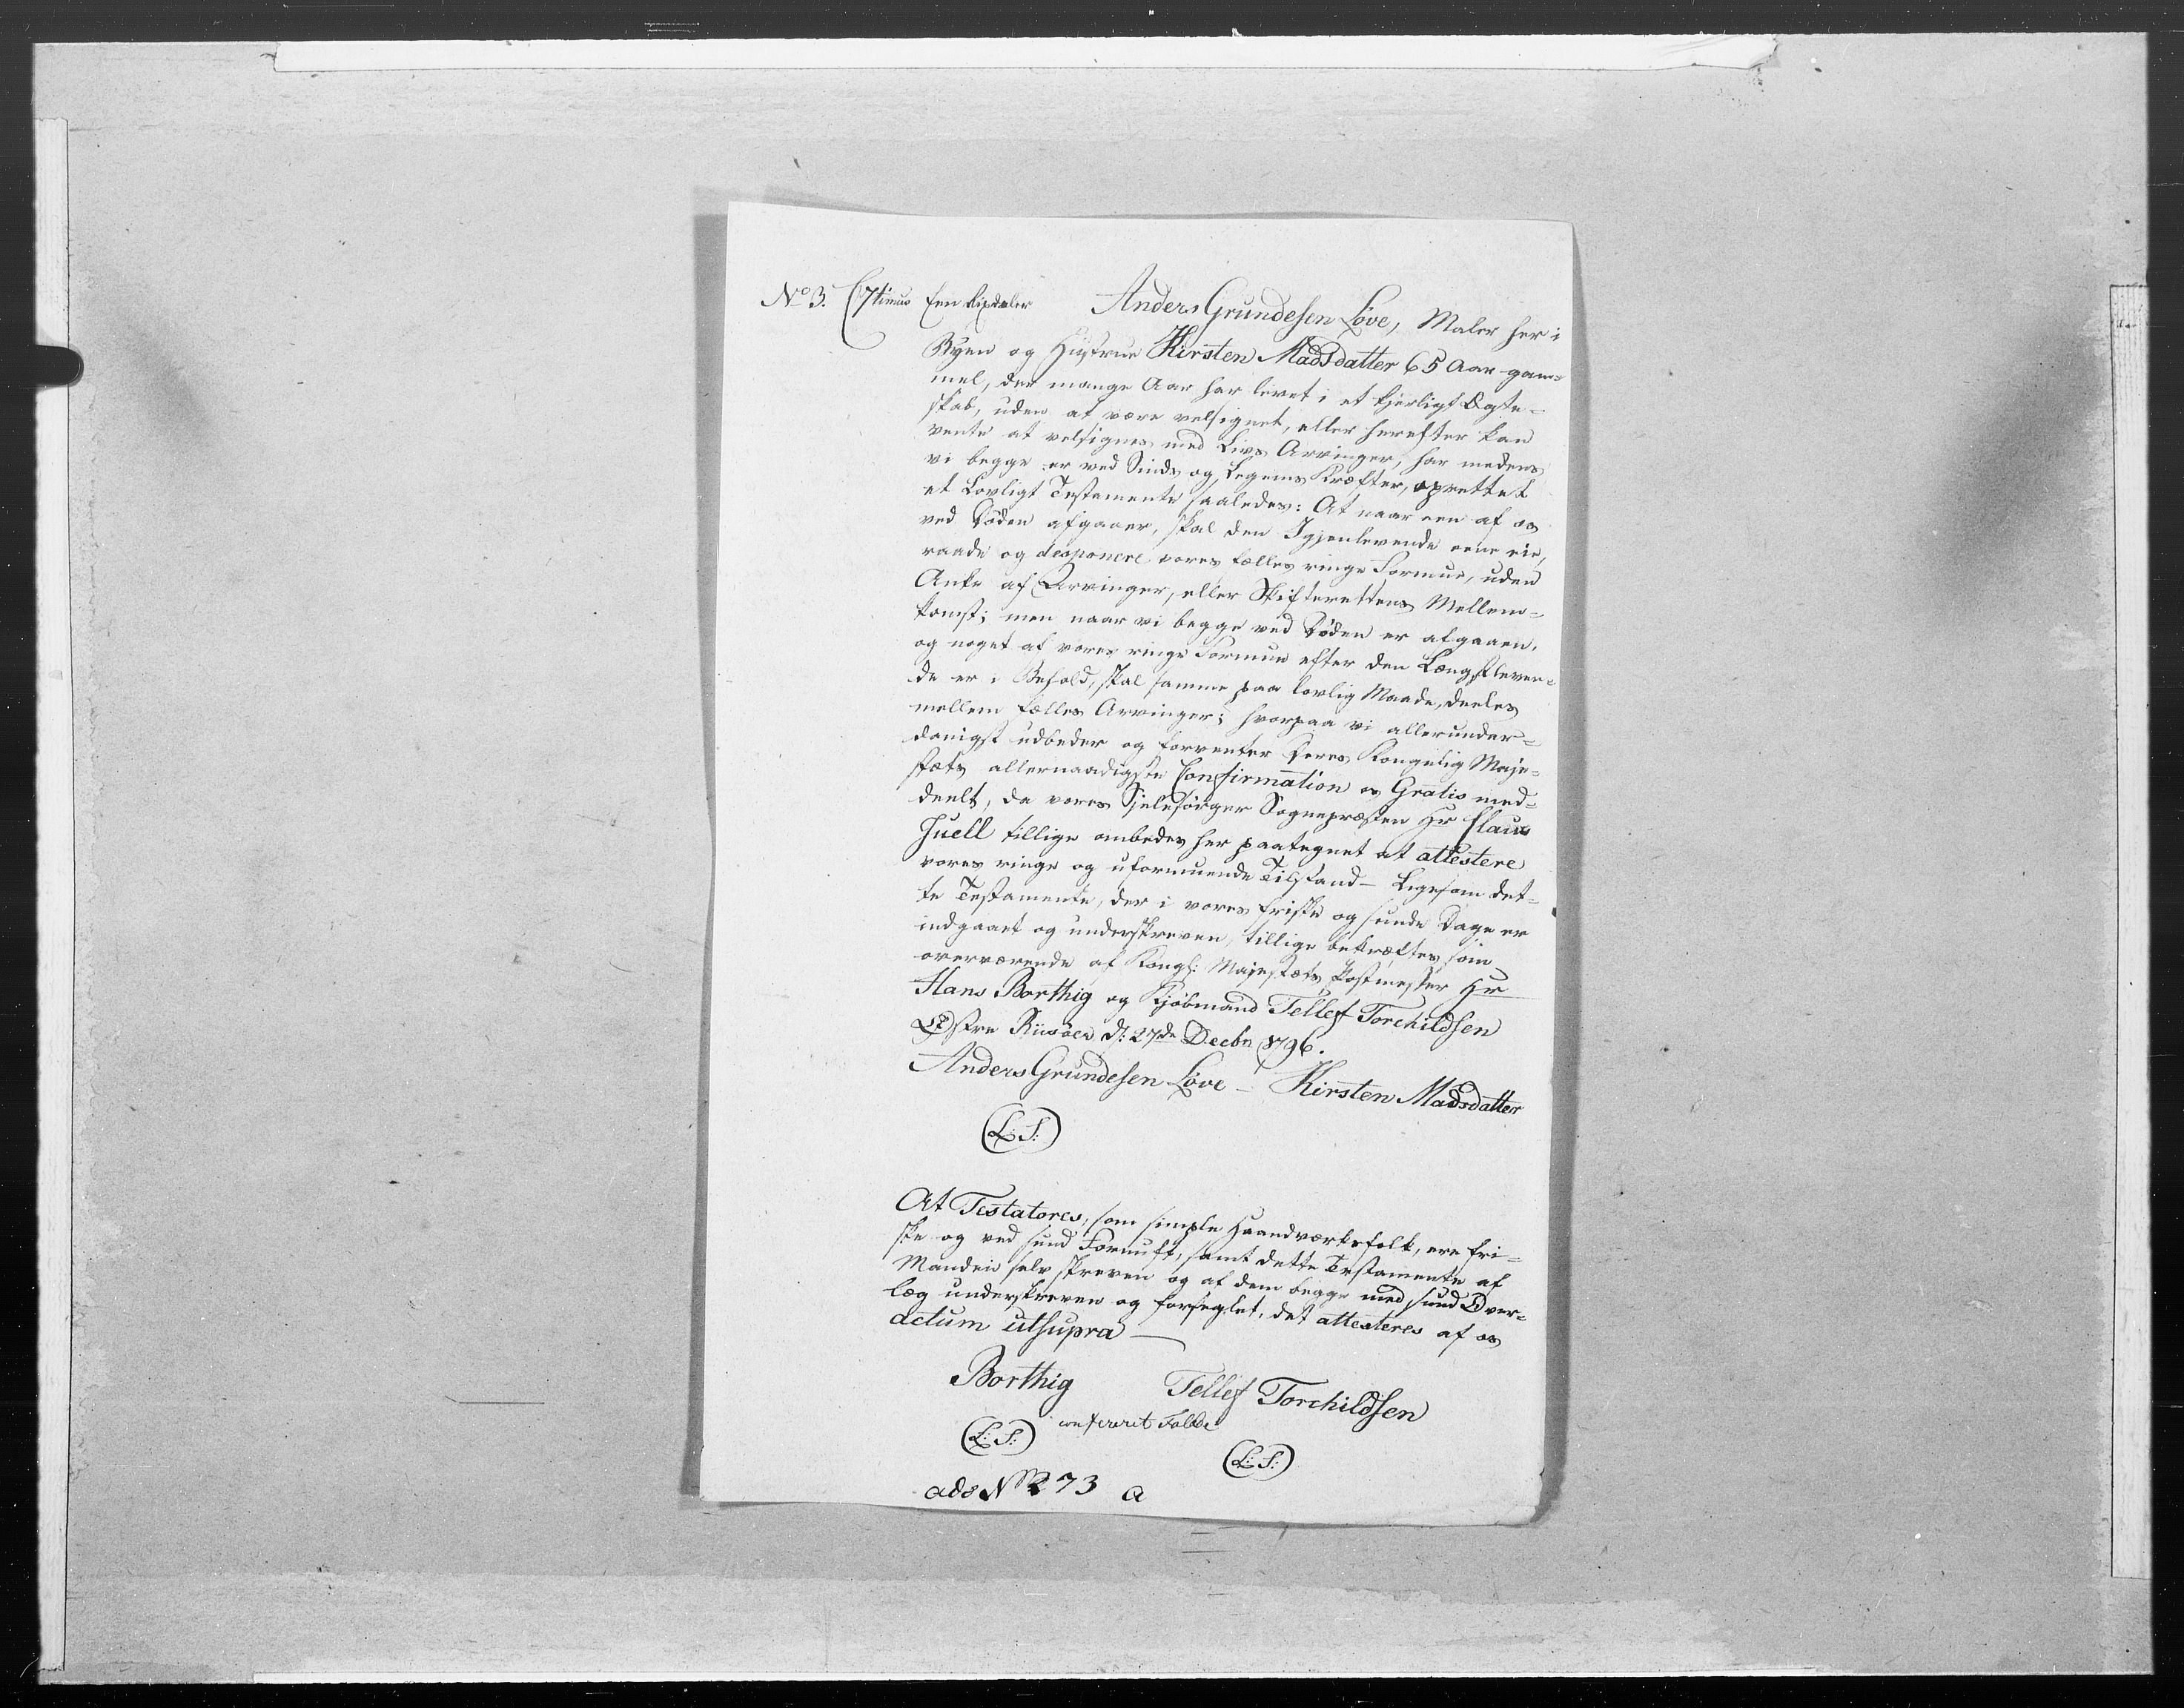 No 3. C7timus Een Rixdaler Anders Grundesen Löve, Maler her i
Byen og Hustrue Kirsten Madsdatter 65 Aar gam=
mel, der mange Aar har levet i et kjerligt Ægte=
skab, uden at være velsignet, eller herefter kan
vente at velsignes med Livs Arvinger, har medens
vi begge er ved Sinds og Legems Kræfter, oprettet
et Lovligt Testamente saaledes: At naar een af os
ved Døden afgaaer, skal den Igjenlevende eene eie,
raade og desponere vores fælles ringe Formue, uden
Anke af Arvinger, eller Skifterettens Mellem=
komst; men naar vi begge ved Døden er afgaaen,
og noget af vores ringe Formue efter den Længstleven=
de er i Behold, skal samme paa lovlig Maade, deeles
mellem fælles Arvinger; hvorpaa vi allerunder=
danigst udbeder og forventer Deres Kongelig Maje=
stæts allernaadigste Confirmation os Gratis med=
deelt, da vores Sjelesörger Sognepræsten Hr Claus
Juell tillige ombedes her paategnet at attestere
vores ringe og uformuende Tilstand - Ligesom det=
te Testamente, der i vores friske og sunde Dage er
indgaaet og underskreven, tillige bekræftes som
overværende af Kongl: Majestæts Postmester Hr
Hans Borthig og Kjöbmand Tellef Torchildsen
Østre Riisöer d: 27de Decbr 1796.
Anders Grundesen Löve - Kirsten Madsdatter
(L: S:)
At Testatores, som simple Haandværksfolk, ere fri=
ske og ved sund Fornuft, samt dette Testamente af
Manden selv skreven og af dem begge med sund Over=
læg underskreven og forseglet, det attesteres af os
actum utsupra
Borthig Tellef Torchildsen
(L: S:) confererit
(L: S:)
ads No 273 a